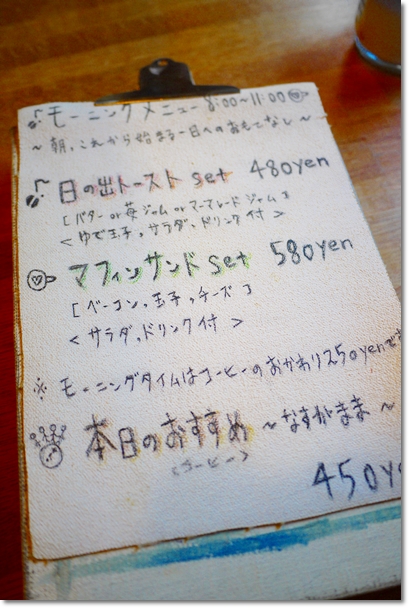 モーニングメニュー 8:00~11:00
~ 朝、これから始まる一日へのおもてなし ~
日の出トースト set 480yen
[ バター or 苺ジャム or マーマレードジャム ]
< ゆで玉子、サラダ、ドリンク付 >
マフィンサンド set 580yen
[ ベーコン、玉子、チーズ ]
< サラダ、ドリンク付 >
※ モーニングタイムはコーヒーのおかわり250yenで
本日のおすすめ ~なすがまま~
<コーヒー>
450y